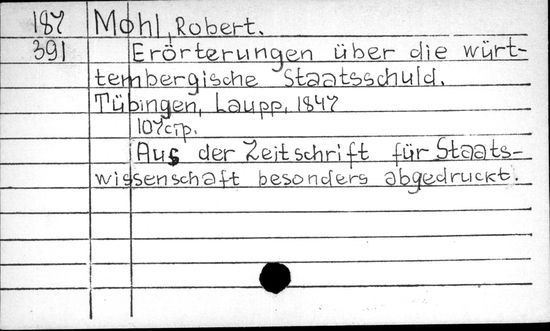 187 Mohl, Robert.
391 Erörterungen über die würt-
tembergische Staatsschuld.
Tübingen, Laupp, 1847
107 стр.
Aus der Zeitschrift für Staats-
wissenschaft besonders abgedruckt.